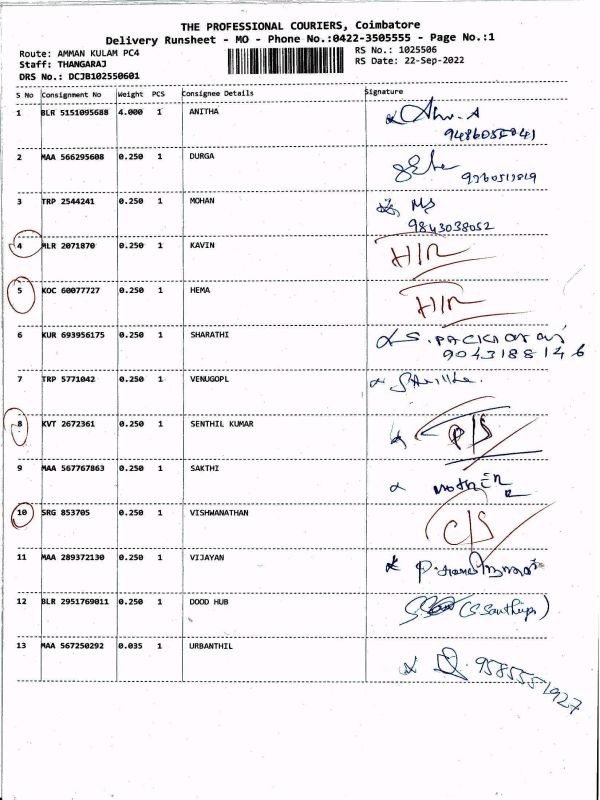 THE PROFESSIONAL COURIERS, Coimbatore
Delivery Runsheet - MO - Phone No.:0422-3505555 - Page No.:1
Route: AMMAN KULAM PC4 RS No.: 1025506
Staff: THANGARAJ RS Date: 22-Sep-2022
DRS No.: DCJB102550601
S No Consignment No Weight PCS Consignee Details Signature
1 BLR 5151095688 4.000 1 ANITHA
2 MAA 566295608 0.250 1 DURGA
3 TRP 2544241 0.250 1 MOHAN
9843038052
4 MLR 2071870 0.250 1 KAVIN H/R
5 KOC 60077727 0.250 1 HEMA H/R
6 KUR 693956175 0.250 1 SHARATHI
9043188146
7 TRP 5771042 0.250 1 VENUGOPL
8 KVT 2672361 0.250 1 SENTHIL KUMAR P/S
9 MAA 567767863 0.250 1 SAKTHI MOTHER
10 SRG 853705 0.250 1 VISHWANATHAN C/S
11 MAA 289372130 0.250 1 VIJAYAN
12 BLR 2951769011 0.250 1 DOOD HUB
13 MAA 567250292 0.035 1 URBANTHIL 9585551927